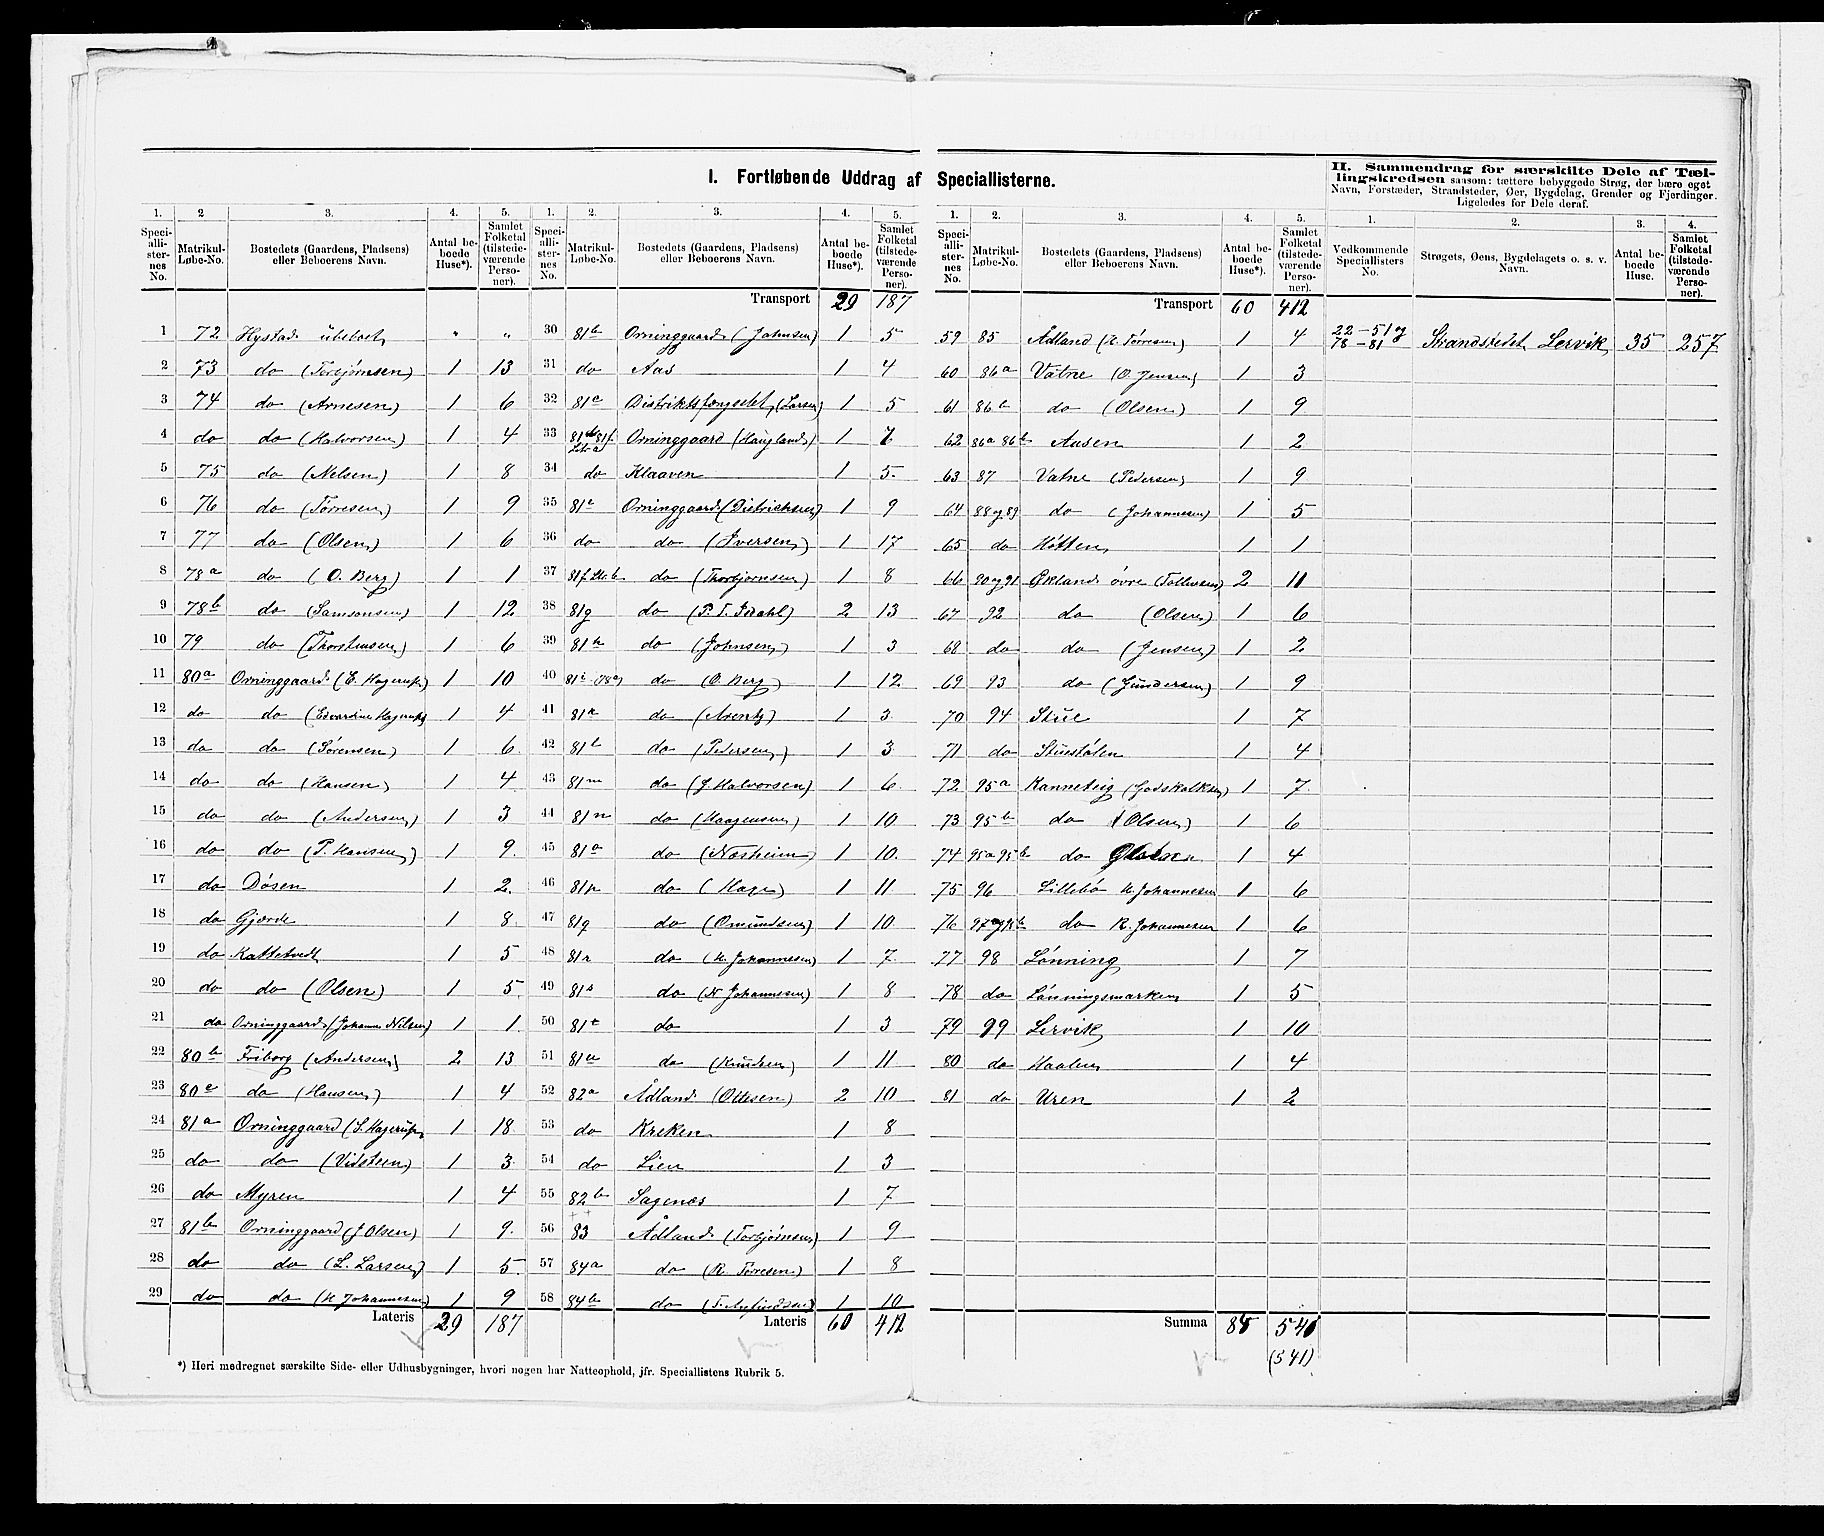 I. Fortløbende Uddrag af Speciallisterne.
II. Sammendrag for særskilte Dele af Tællingskredsen saasom: tættere bebyggede Strøg, der bære eget
Navn, Forstæder, Strandsteder, Øer, Bygdelag, Grender og Fjerdinger.
Ligeledes for Dele deraf.
1. 2 3. 4. 5.
Speciallisternes No. Matrikul-Løbe-No. Bostedets (Gaardens, Pladsens) eller Beboerens Navn. Antal beboede Huse*). Samlet Folketal (tilstedeværende Personer).
1 72 Hystad ubeboet " "
2 73 do (Torbjørnsen) 1 13
3 74 do (Arnesen) 1 6
4 do do (Halvorsen) 1 4
5 75 do (Nelsen) 1 8
6 76 do (Tørresen) 1 9
7 77 do (Olsen) 1 6
8 78a do (O. Berg) 1 1
9 78b do (Samsonsen) 1 12
10 79 do (Thorstensen) 1 6
11 80a Orninggaard (E. Hagerup) 1 10
12 do do (Edvardine Hagerup) 1 4
13 do do (Sørensen) 1 6
14 do do (Hansen) 1 4
15 do do (Andersen) 1 3
16 do do (P. Hansen) 1 9
17 do Døsen 1 2
18 do Gjærde 1 8
19 do Kattetvedt 1 5
20 do do (Olsen) 1 5
21 do Orninggaard (Johannes Nilsen) 1 1
22 80b Friborg (Andersen) 2 13
23 80c do (Hansen) 1 4
24 81a Orninggaard (S. Hagerup) 1 18
25 do do (Vidsteen) 1 3
26 do Myren 1 4
27 81b Orninggaard (J Olsen) 1 9
28 do do (L. Larsen) 1 5
29 do do (H Johannesen) 1 9
Lateris 29 187
1. 2. 3. 4. 5.
Speciallisternes No. Matrikul-Løbe-No. Bostedets (Gaardens, Pladsens) eller Beboerens Navn. Antal beboede Huse*). Samlet Folketal (tilstedeværende Personer).
Transport 29 187
30 81b Orninggaard (Johnsen) 1 5
31 do Aas 1 4
32 81c Distriktsfængslet (Larsen) 1 5
33 81f Orninggaard (Haugland) 1 7
34 do Klaaven 1 5
35 81e Orninggaard (Dietrichsen) 1 9
36 do do (Iversen) 1 17
37 81f Litr. b do (Thorbjørnsen) 1 8
38 81g do (P. T. Isdahl) 2 13
39 81h do (Johnsen) 1 3
40 81i-78a do (O. Berg) 1 12
41 81k do (Arentz) 1 3
42 81l do (Pedersen) 1 3
43 81m do (J. Halvorsen) 1 6
44 81n do (Haagensen) 1 10
45 81o do (Næsheim) 1 10
46 81p do (Hage) 1 11
47 81q do (Omundsen) 1 10
48 81r do (H Johannesen) 1 7
49 81s do (N Johannesen) 1 8
50 81t do 1 3
51 81u do (Knudsen) 1 11
52 82a Ådland (Ottesen) 2 10
53 do Kreken 1 8
54 do Lien 1 3
55 82b Sagenæs 1 7
56 83 Ådland (Torbjørnsen) 1 9
57 84a do (R. Tørresen) 1 8
58 84b do 1 10
Lateris 60 412
1. 2. 3. 4. 5.
Speciallisternes No. Matrikul-Løbe-No. Bostedets (Gaardens, Pladsens) eller Beboerens Navn. Antal beboede Huse*). Samlet Folketal (tilstedeværende Personer).
Transport 60 412
59 85 Ådland (K. Tørresen) 1 4
60 86a Vatne (O. Jensen) 1 3
61 86b do (Olsen) 1 9
62 86a 86b Aasen 1 2
63 87 Vatne (Pedersen) 1 9
64 88 og 89 do (Johannesen) 1 5
65 do Hótten 1 1
66 90 og 91 Økland øvre (Tollevsen) 2 11
67 92 do (Olsen) 1 6
68 do do (Jensen) 1 2
69 93 do (Gundersen) 1 9
70 94 Stue 1 7
71 do Stuestølen 1 4
72 95a Kanneteig (Godskalksen) 1 7
73 95b do (Olsen) 1 6
74 95a 95b do 1 4
75 96 Lillebø H Johannesen 1 6
76 do R. Johannesen 1 6
77 98 Lønning 1 7
78 do Lønningsmarken 1 5
79 99 Lervik 1 10
80 do Haalen 1 4
81 do Uren 1 2
Summa 85 540
(541)
1. 2. 3. 4.
Vedkommende Speciallisters No. Strøgets, Øens, Bygdelagets o. s. v. Navn. Antal beboede Huse. Samlet Folketal (tilstedeværende Personer).
22-51 og
78-81 Strandstedet Lervik 35 257
*) Heri medregnet særskilte Side- eller Udhusbygninger, hvori nogen har Natteophold, jfr. Speciallistens Rubrik 5.